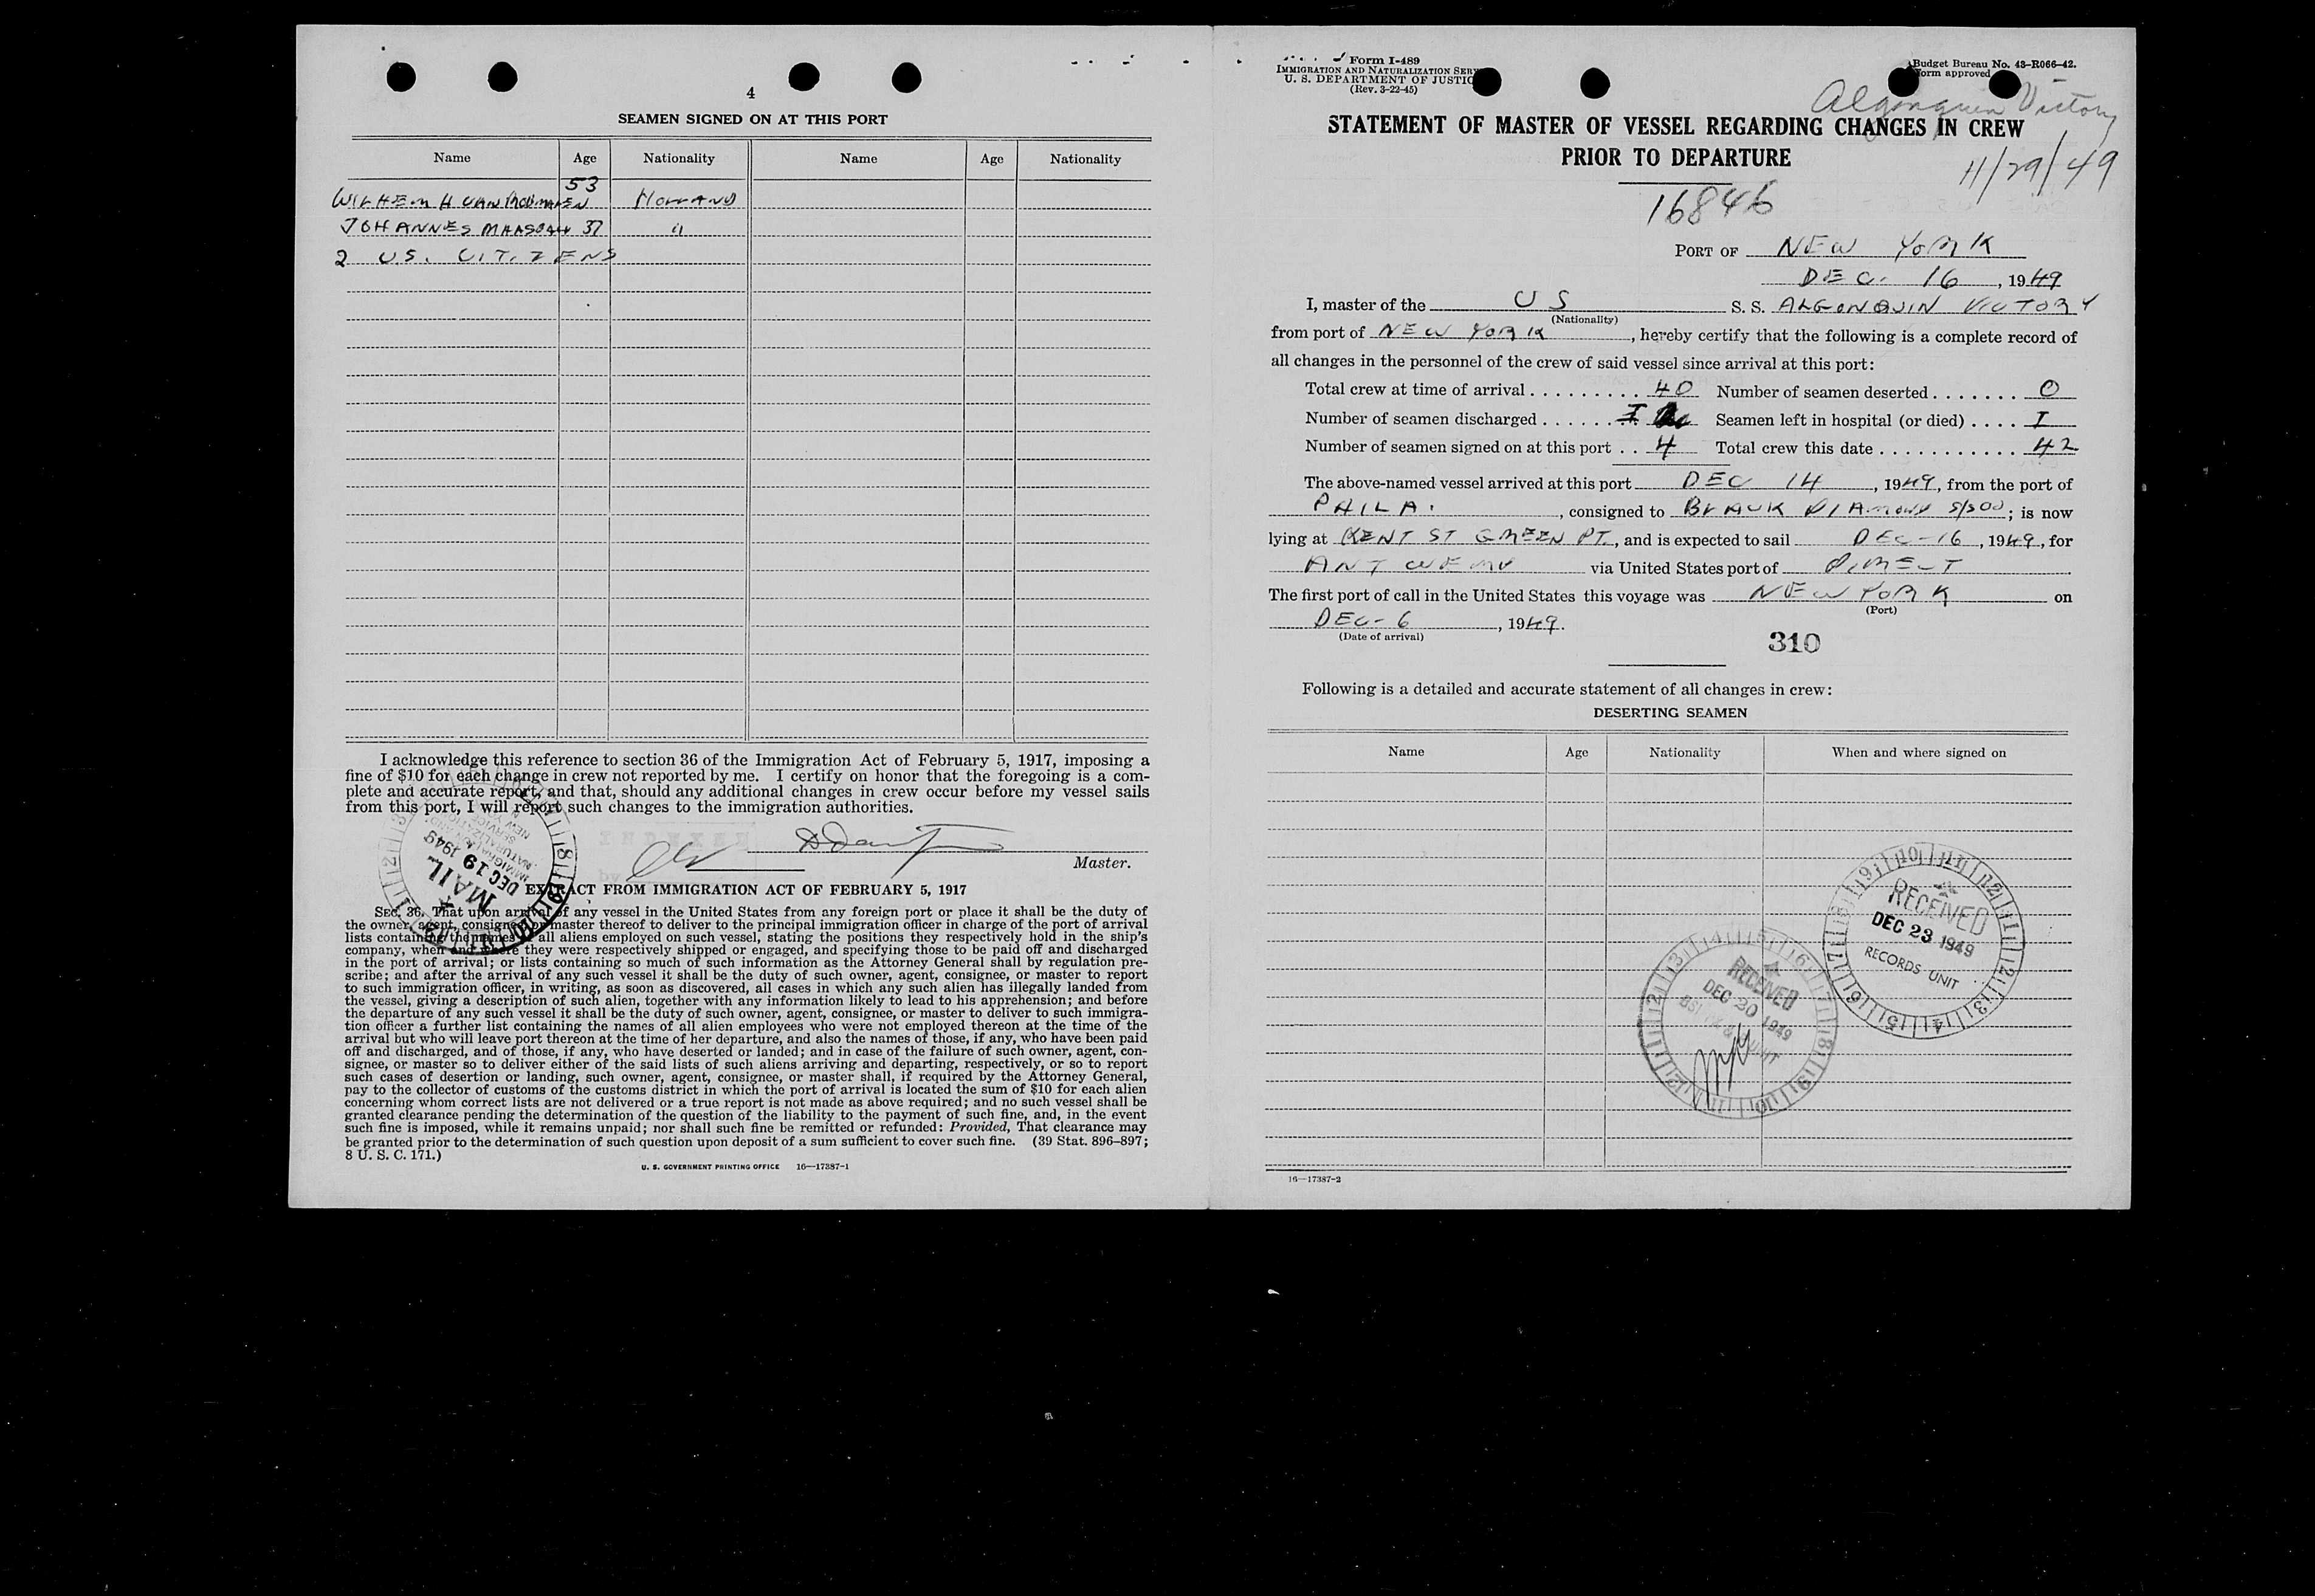 4
SEAMEN SIGNED ON AT THIS PORT
Name Age Nationality Name Age Nationality
53
WILHEM H VAN HOLLAND
JOHANNES 37 "
2 U.S. CITIZENS
I acknowledge this reference to section 36 of the Immigration Act of February 5, 1917, imposing a
fine of $10 for each change in crew not reported by me. I certify on honor that the foregoing is a com-
plete and accurate report, and that, should any additional changes in crew occur before my vessel sails
from this port, I will report such changes to the immigration authorities.
INDEXED
Master.
MAIL
DEC 19 1949
IMMIGRATION AND
NATURALIZATION
SERVICE
NEW YORK
EXTRACT FROM IMMIGRATION ACT OF FEBRUARY 5, 1917
SEC. 36. That upon arrival of any vessel in the United States from any foreign port or place it shall be the duty of
the owner, agent, consignee, or master thereof to deliver to the principal immigration officer in charge of the port of arrival
lists containing the names of all aliens employed on such vessel, stating the positions they respectively hold in the ship's
company, when and where they were respectively shipped or engaged, and specifying those to be paid off and discharged
in the port of arrival; or lists containing so much of such information as the Attorney General shall by regulation pre-
scribe; and after the arrival of any such vessel it shall be the duty of such owner, agent, consignee, or master to report
to such immigration officer, in writing, as soon as discovered, all cases in which any such alien has illegally landed from
the vessel, giving a description of such alien, together with any information likely to lead to his apprehension; and before
the departure of any such vessel it shall be the duty of such owner, agent, consignee, or master to deliver to such immigra-
tion officer a further list containing the names of all alien employees who were not employed thereon at the time of the
arrival but who will leave port thereon at the time of her departure, and also the names of those, if any, who have been paid
off and discharged, and of those, if any, who have deserted or landed; and in case of the failure of such owner, agent, con-
signee, or master so to deliver either of the said lists of such aliens arriving and departing, respectively, or so to report
such cases of desertion or landing, such owner, agent, consignee, or master shall, if required by the Attorney General,
pay to the collector of customs of the customs district in which the port of arrival is located the sum of $10 for each alien
concerning whom correct lists are not delivered or a true report is not made as above required; and no such vessel shall be
granted clearance pending the determination of the question of the liability to the payment of such fine, and, in the event
such fine is imposed, while it remains unpaid; nor shall such fine be remitted or refunded: Provided, That clearance may
be granted prior to the determination of such question upon deposit of a sum sufficient to cover such fine. (39 Stat. 896-897;
8 U. S. C. 171.)
U. S. GOVERNMENT PRINTING OFFICE 16—17387-1
Form I-489
IMMIGRATION AND NATURALIZATION SERV
U. S. DEPARTMENT OF JUSTIC
(Rev. 3-22-45)
Budget Bureau No. 43-R066-42.
Form approved
Algonquin Victory
STATEMENT OF MASTER OF VESSEL REGARDING CHANGES IN CREW
PRIOR TO DEPARTURE
11/29/49
16846
PORT OF NEW YORK
DEC. 16, 1949
I, master of the US S. S. ALGONQUIN VICTORY
(Nationality)
from port of NEW YORK, hereby certify that the following is a complete record of
all changes in the personnel of the crew of said vessel since arrival at this port:
Total crew at time of arrival . . . . . . . . . 40 Number of seamen deserted . . . . . . . 0
Number of seamen discharged . . . . . . I Seamen left in hospital (or died) . . . . I
Number of seamen signed on at this port . . 4 Total crew this date . . . . . . . . . . . 42
The above-named vessel arrived at this port DEC 14, 1949, from the port of
PHILA., consigned to BLACK DIAMOND S/S CO; is now
lying at KENT ST GREEN PT., and is expected to sail DEC-16, 1949, for
ANTWERP via United States port of DIRECT
The first port of call in the United States this voyage was NEW YORK on
(Port)
DEC-6, 1949.
(Date of arrival)
310
Following is a detailed and accurate statement of all changes in crew:
DESERTING SEAMEN
Name Age Nationality When and where signed on
RECEIVED
DEC 23 1949
RECORDS UNIT
RECEIVED
DEC 20 1949
UNIT
16—17387-2